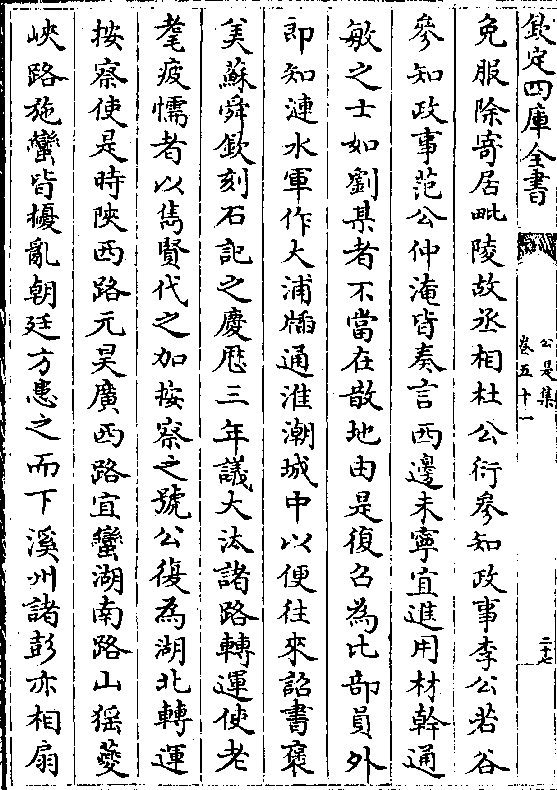 欽定四庫全書
公是集
卷五十一
二十七
免服除寄居毗陵故丞相杜公衍參知政事李公若谷
參知政事范公仲淹皆奏言西邊未寧宜進用材幹通
敏之士如劉某者不當在散地由是復召為比部員外
即知漣水軍作大浦牐通淮潮城中以便往來詔書褒
美蘇舜欽刻石記之慶厯三年議大汰諸路轉運使老
耄疲懦者以雋賢代之加按察之號公復為湖北轉運
按察使是時陜西路元昊廣西路宜蠻湖南路山猺䕫
峽路施蠻皆擾亂朝廷方患之而下溪州諸彭亦相扇